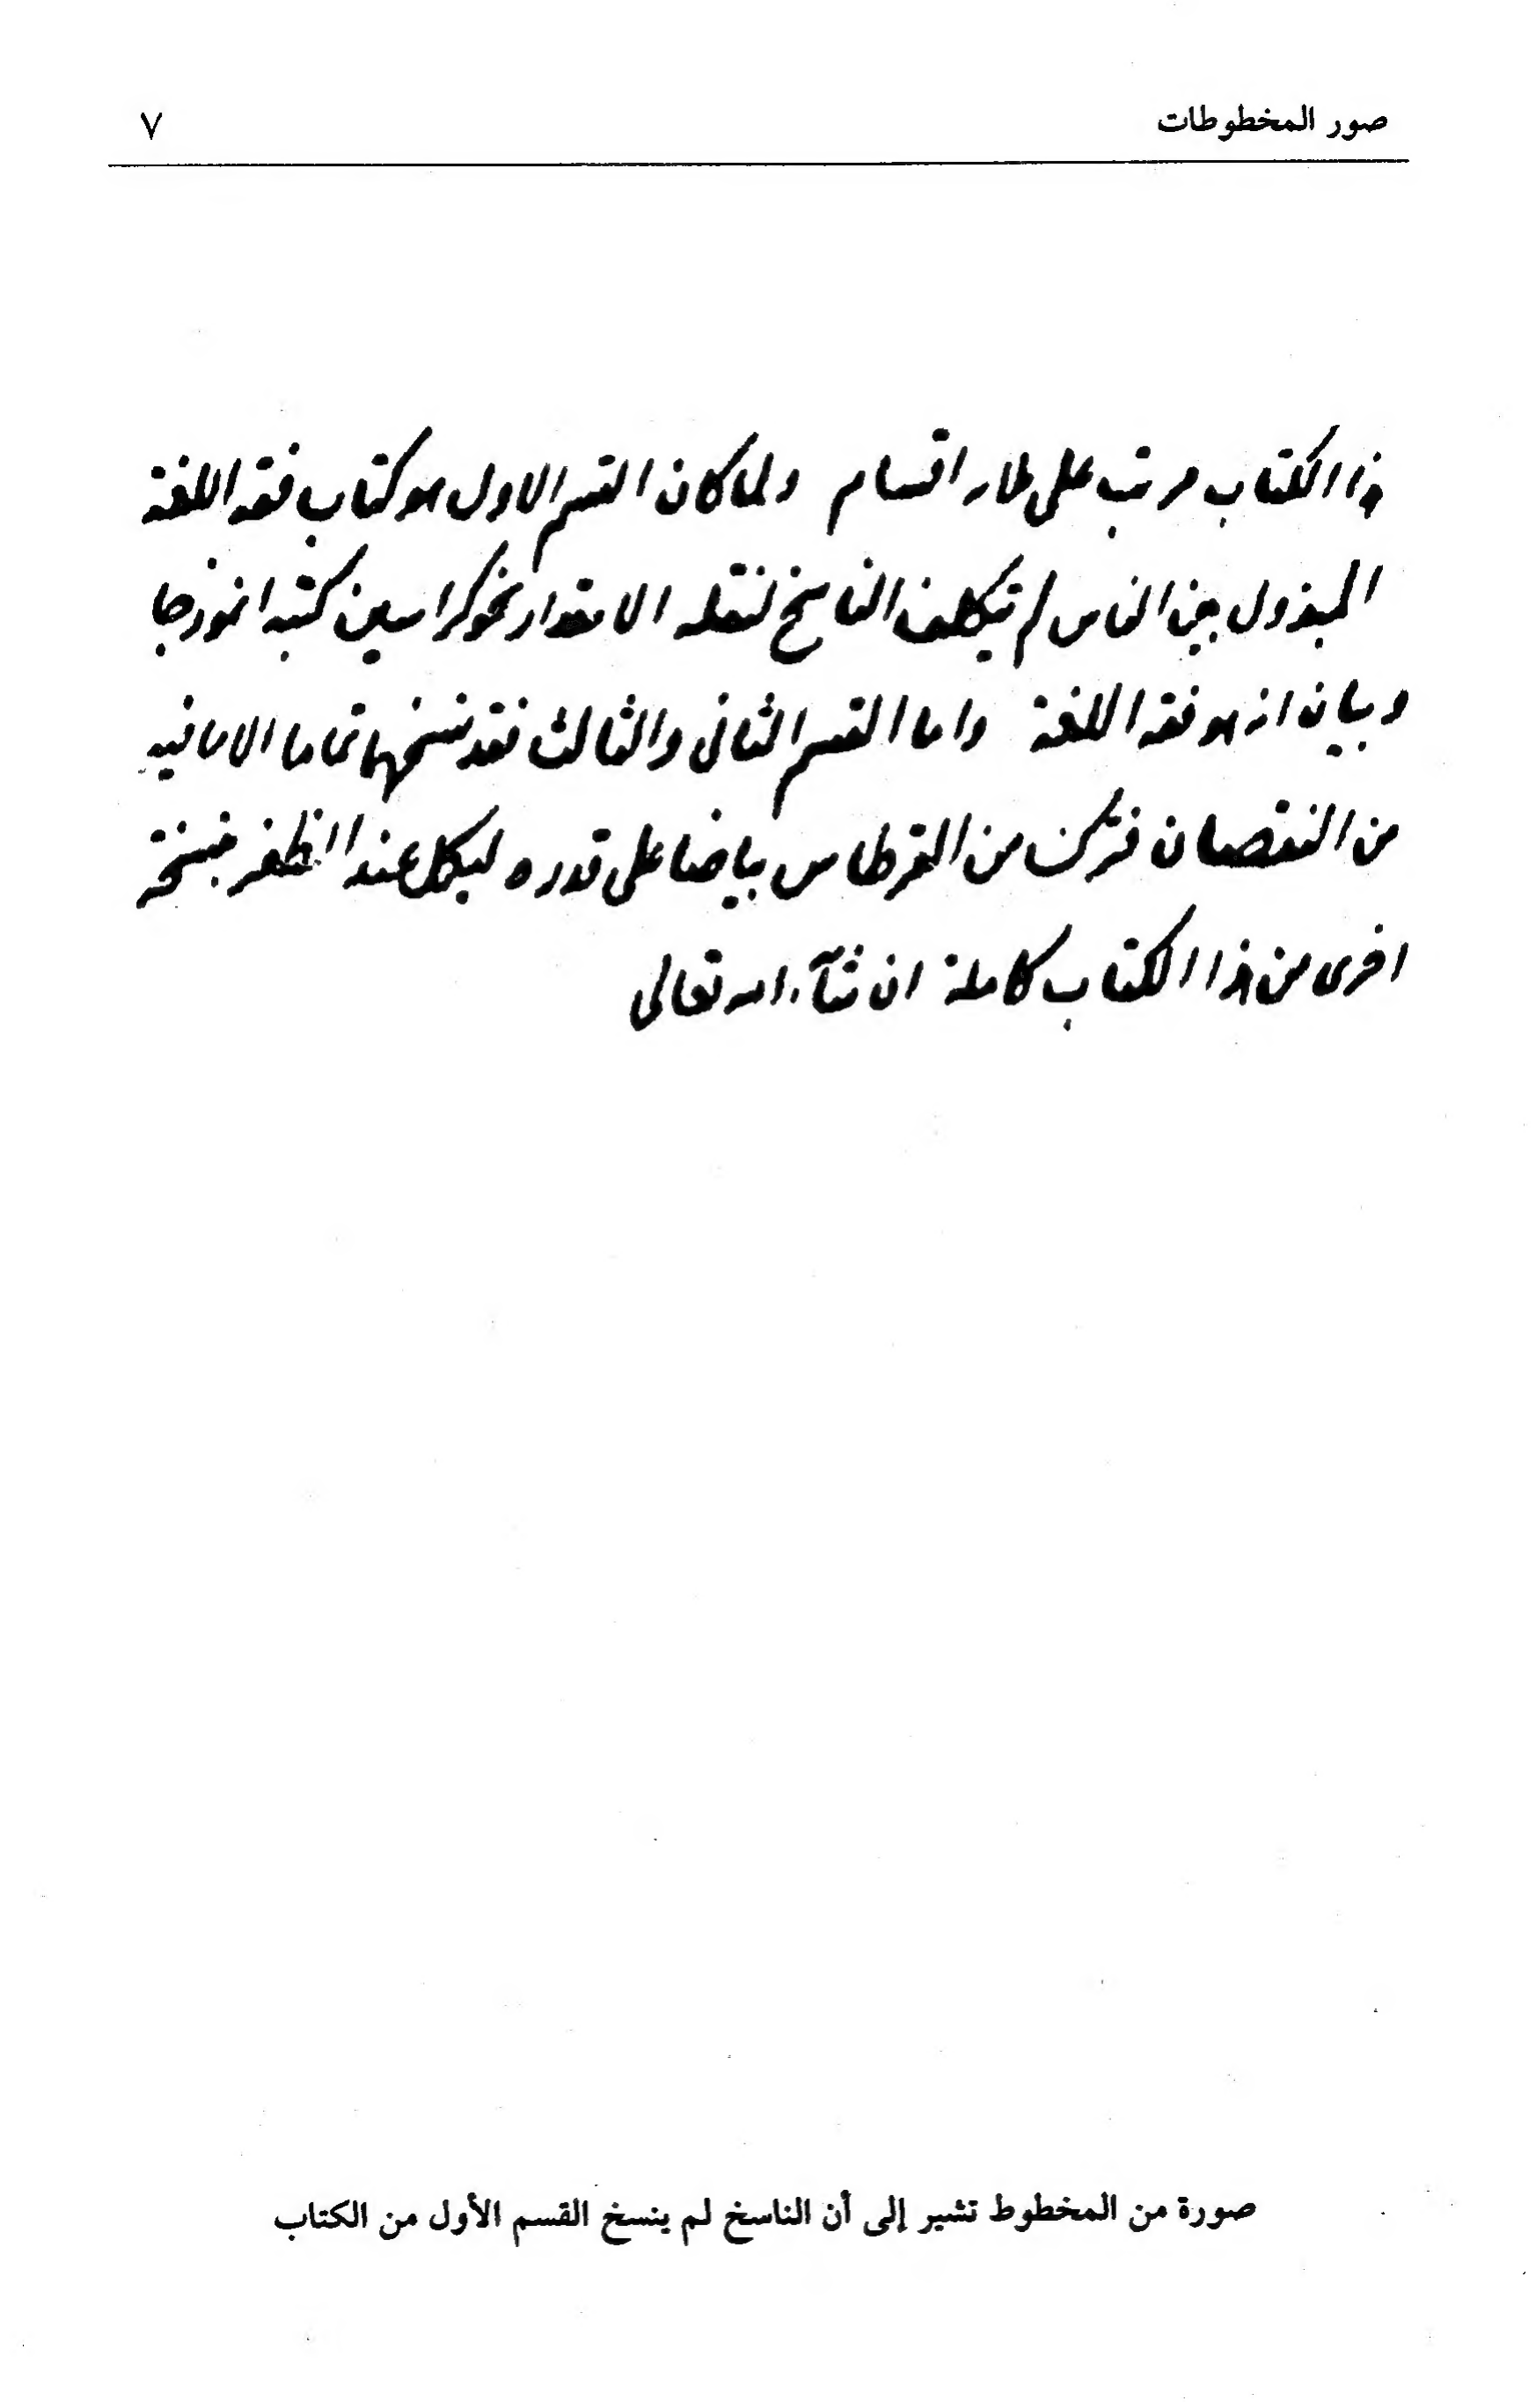 صور المخطوطات ٧
هذا الكتاب مرتب على اقسام ولما كان القسم الاول هو كتاب فقه اللغة
المبذول بين الناس لم يتكلف الناسخ لنقله الا مقدار نحو كراسين كتبه انموذجا
وبيان انه هو فقه اللغة واما القسم الثانى والثالث فقد نسخهما تماما الا ما فيه
من النقصان فترك من القرطاس بياضا على قدره ليكمل عند الظفر بنسخة
اخرى من هذا الكتاب كاملة ان شآء الله تعالى
صورة من المخطوط تشير إلى أن الناسخ لم ينسخ القسم الأول من الكتاب